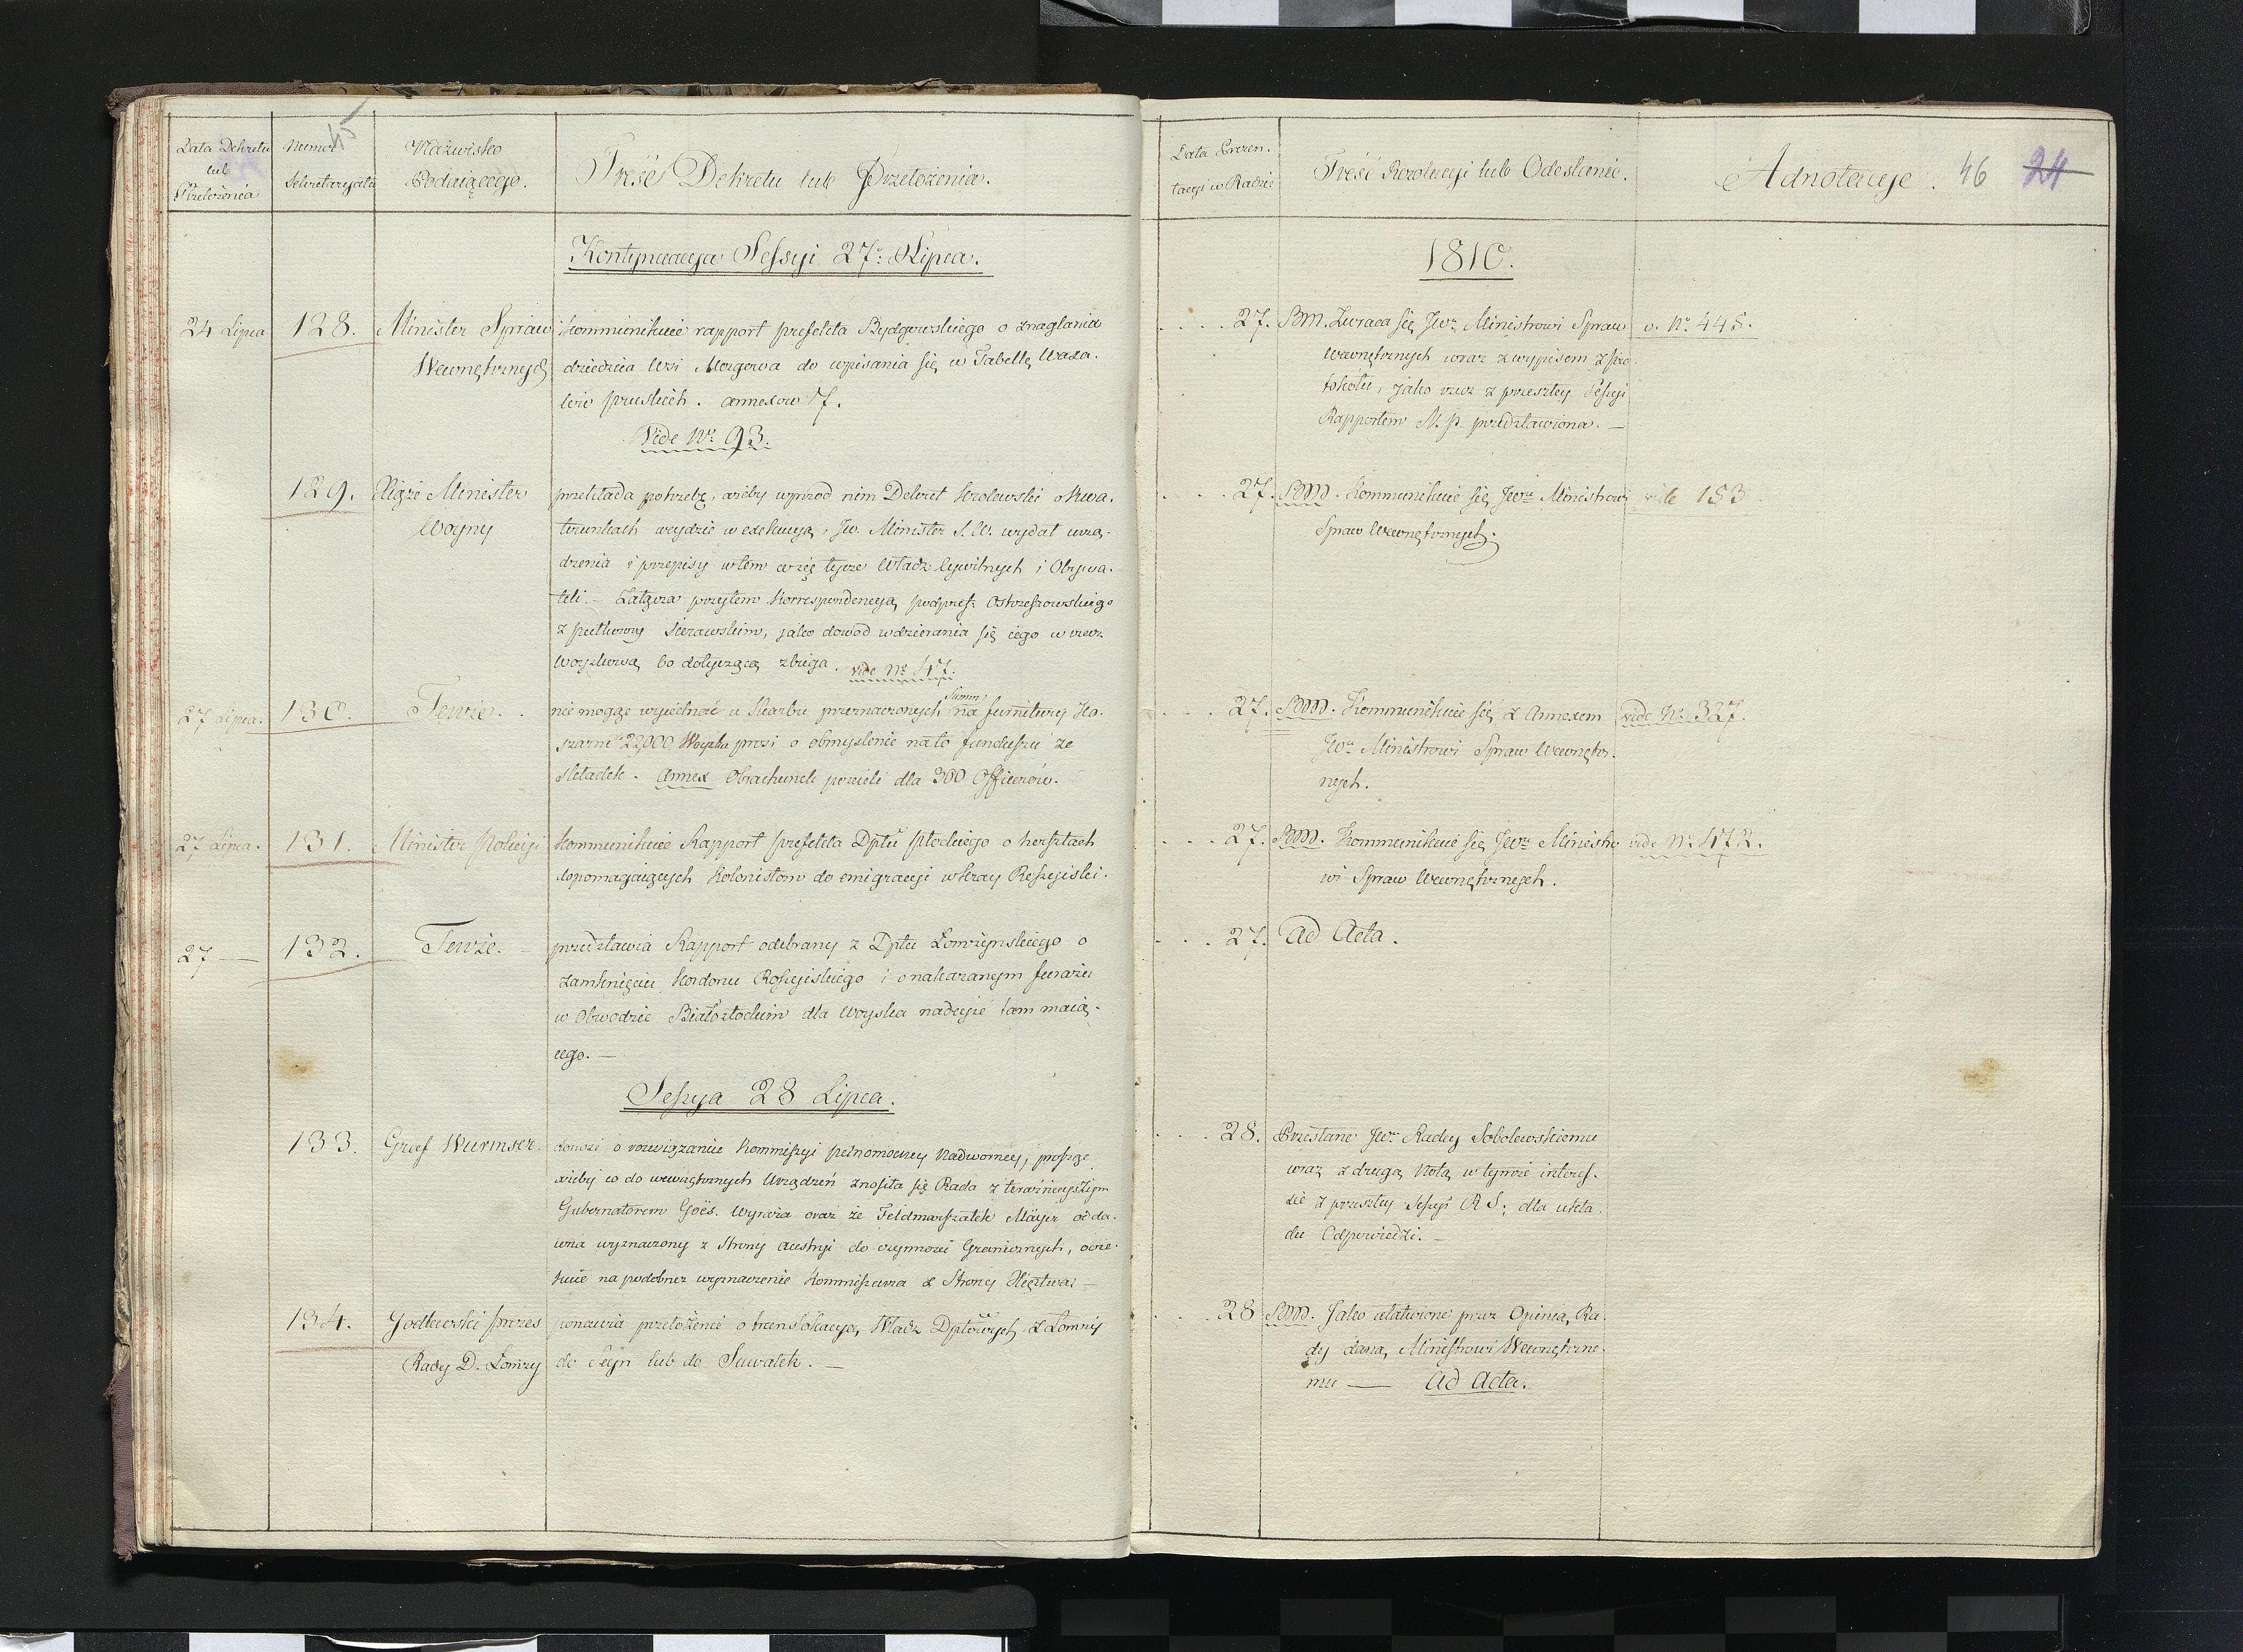 Data Dekretu
lub
Przełożenia
Numer
Sekretaryatu
45
Nazwisko
Podaiącego.
Treść Dekretu lub Przełożenia.
Kontynuacya Sessyi 27º Lipca.
24 Lipca
128.
Minister Spraw
Wewnętrznych
kommunikuie rapport prefekta Bydgowskiego o znaglania
dziedzica Wsi Morgowa do wpisania się w Tabellę Waza.
lów pruskich. annexow 17.
Vide Nº 93.
129.
Xiąże Minister
Woyny
przekłada potrzebę, ażeby wprzod nim Dekret Krolewski o Kwa.
terunkach weydzie w exekucyą, Jw. Minister S. W. wydał urzą.
dzenia i przepisy w tem co się tycze Władz Cywilnych i Obywa.
teli. - Załącza przytem korrespondencyą podpref. Ostrzeszowskiego
z pułkowny Sierawskim, jako dowód wdzierania się iego w rzecz
Woyskową bo dotyczącą zbiega. vide Nº 47.
27 Lipca.
130.
Tenże.
Summ
nie mogąc wyiednać u Skarbu przeznaczonych na furnitury Ko.
szarne 22,000 Woyska prosi o obmyślenie na to funduszu ze
składek. Annex Obrachunek pościeli dla 300 Officerów.
27 Lipca.
131.
Minister Policyi
kommunikuie Rapport prefekta Dptu płockiego o hersztach
dopomagaiących kolonistom do emigracyi w kray Rossyiski.
27 —
132.
Tenże. -
przedstawia Rapport odebrany z Dptu Łomżynskiego o
zamknięciu kordonu Rossyiskiego i o nakazanym furażu
w Obwodzie Białostockim dla Woyska nadeyść tam maią.
cego. —
Sessya 28 Lipca.
133.
Graf Wurmser.
donosi o rozwiązaniu Kommissyi pełnomocney Nadworney, prosząc
ażeby co do wewnętrznych Urządzeń znosiła się Rada z teraźnieyszym
Gubernatorem Goës. Wyraża oraz że Feldmarszałek Mäyer od da.
wna wyznaczony z Strony Austryi do czynności Granicznych, ocze.
kuie na podobnez wyznaczenie Kommissarza z Strony Xięstwa. —
134.
Godlewski prezes
Rady D. Łomży
ponawia przełożenie o translokacyą Władz Dptowych z Łomży
do Seyn lub do Suwałek. —
Data Prezen.
tacyi w Radzie
Treść Rezolucyi lub Odesłanie.
Adnotacye. 46 24
1810.
27.
Bm. Zwraca się Jwº Ministrowi Spraw
Wewnętrznych wraz z wypisem z pro.
tokółu, jako rzecz z przeszłey Sessyi
Rapportem N. P. przedstawiona. —
v. Nº 445.
27.
BM. Kommunikuie się Jwu Ministrowi
Spraw Wewnętrznych.
vide 153
27.
BM. Kommunikuie się z Annexem
Jwu Ministrowi Spraw Wewnętrz.
nych.
vide Nº 327.
27.
BM. Kommunikuie się Jwu Ministro
wi Spraw Wewnętrznych.
vide Nº 472.
27.
Ad Acta.
28.
Przesłane Jwu Radcy Sobolewskiemu
wraz z drugą Notą w tymże interes.
sie z przeszłey Sessyi R S. dla ukła.
du Odpowiedzi. —
28
BM. Jako ułatwione przez Opinią Ra.
dy daną Ministrowi Wewnętrzne.
mu — Ad Acta.